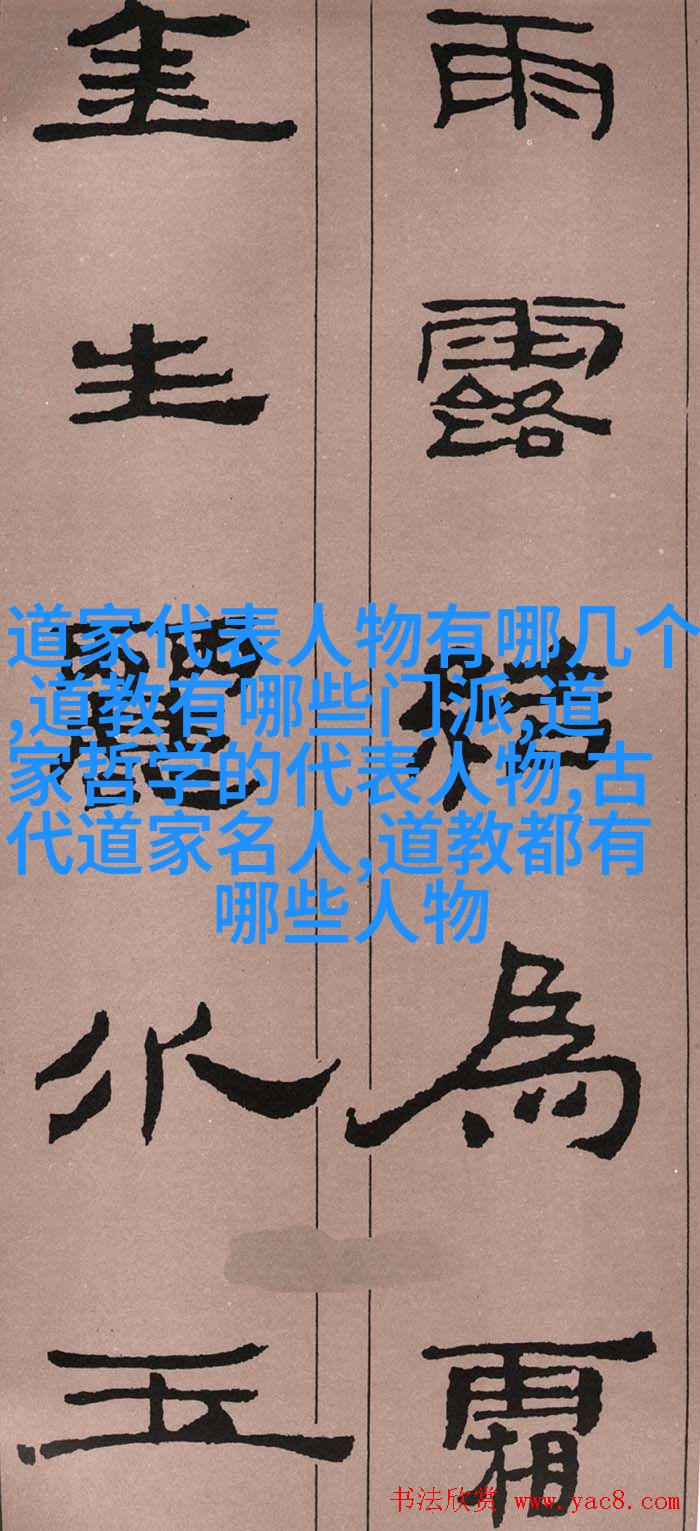 雨露結為霜
金生麗水玉
道家代表人物有哪几个
,道教有哪些门派,道
家哲学的代表人物,古
代道家名人,道教都有
哪些人物
书法欣赏 www.yac8.com